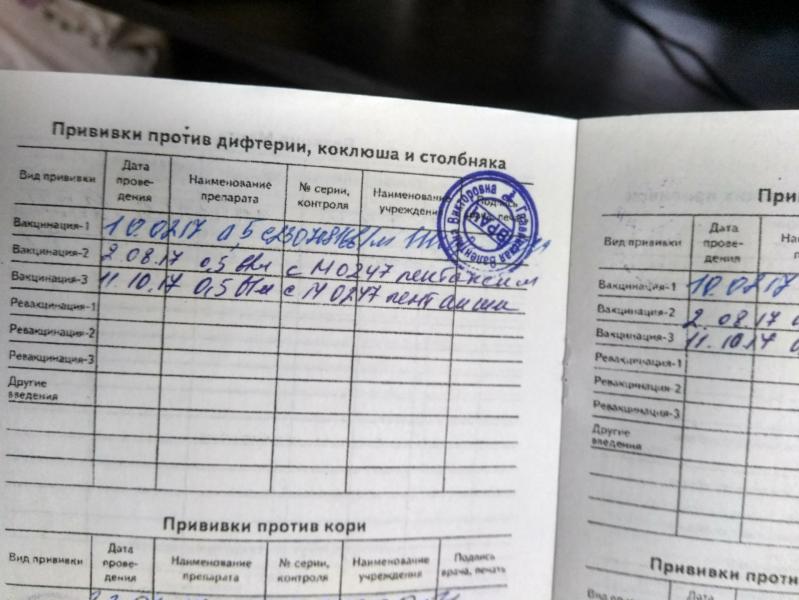 Прививки против дифтерии, коклюша и столбняка
Вид прививки Дата прове-дения Наименование препарата № серии, контроля Наименование учреждения Подпись
Викторовна
ВРАЧ
Вакцинация-1 10.02.17 0,5 с
Вакцинация-2 2.08.17 0,5 в/м с M0247 пентаксим
Вакцинация-3 11.10.17 0,5 в/м с M0247 пентаксим
Ревакцинация-1
Ревакцинация-2
Ревакцинация-3
Другие
введения
Прививки против кори
Вид прививки Дата прове-дения Наименование препарата № серии, контроля Наименование учреждения Подпись врача, печать
При
Вид прививки Дата прове-дения На
Вакцинация-1 10.02.17
Вакцинация-2 2.08.17
Вакцинация-3 11.10.17
Ревакцинация-1
Ревакцинация-2
Ревакцинация-3
Другие
введения
Прививки проти
Дата